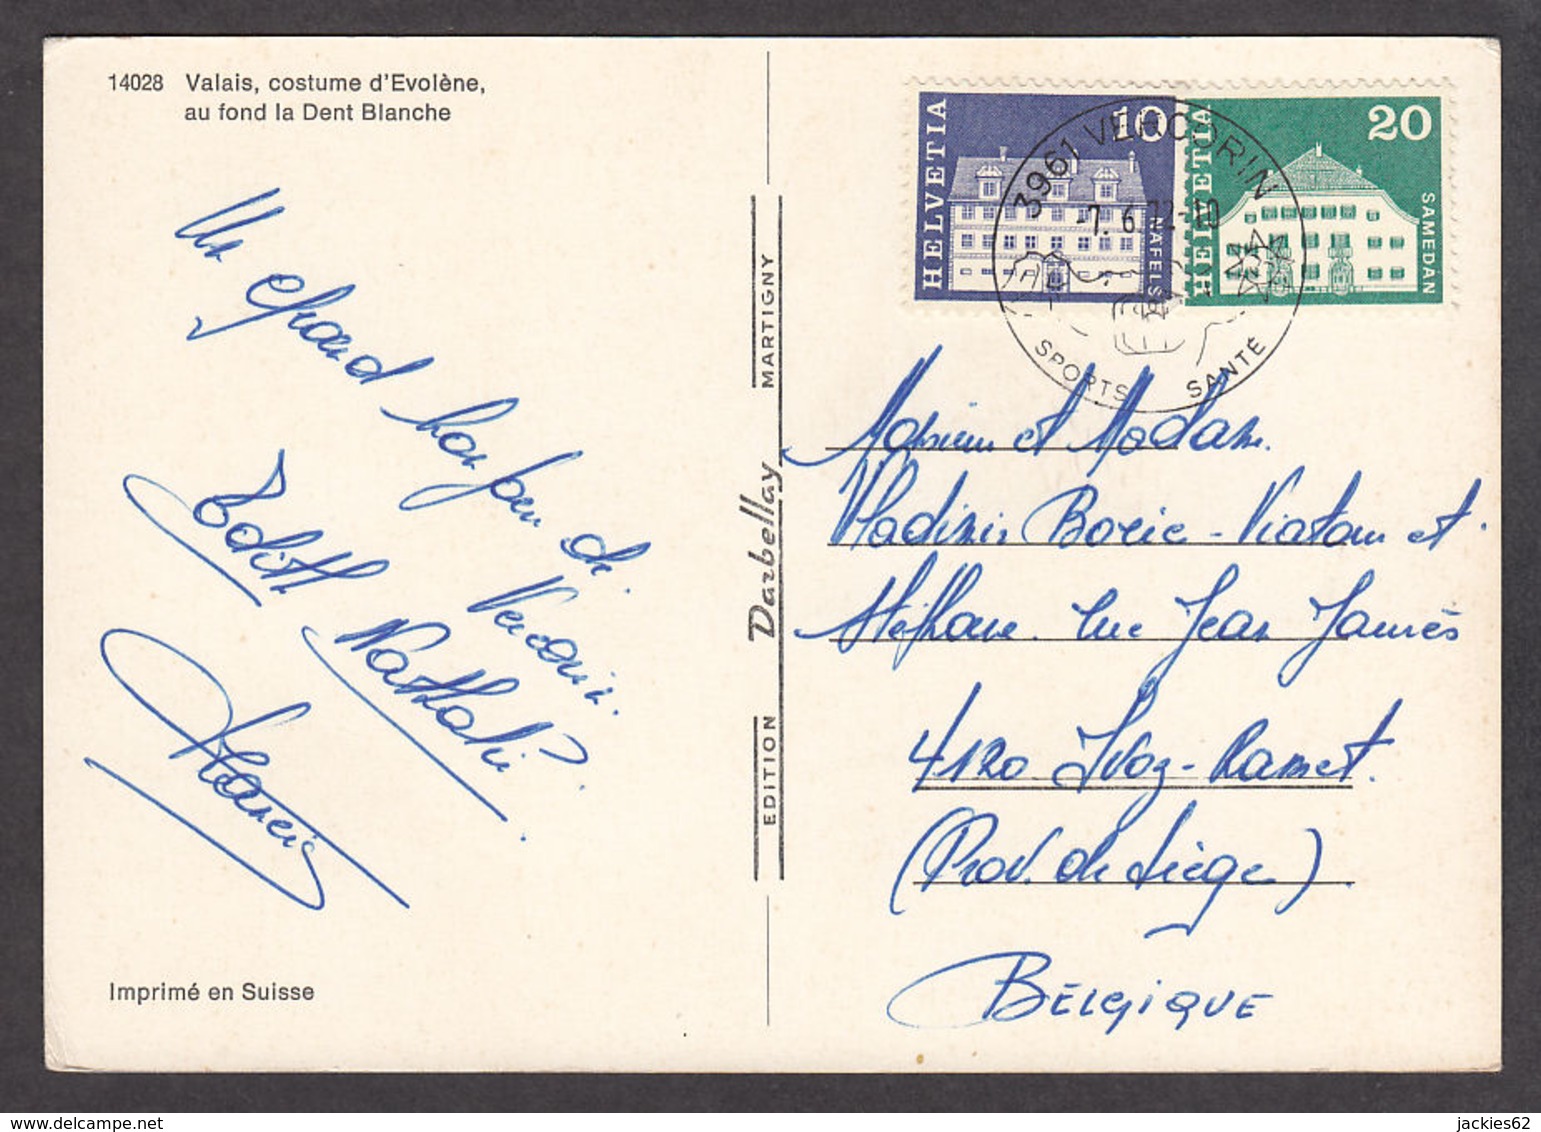 14028 Valais, costume d'Evolène,
au fond la Dent Blanche
Un grand bonjour de
Vercorin.
Edith Nathalie.
Francis
Imprimé en Suisse
EDITION Darbellay MARTIGNY
HELVETIA 10 NÄFELS
HELVETIA 20 SAMEDAN
3961 VERCORIN
-7. 6.72-10
SPORTS SANTÉ
Monsieur et Madame
Vladimir Boric - et
Stéphane. rue Jean Jaurès
4120 Ivoz-Ramet.
(Prov. de Liège).
BELGIQUE
jackies62